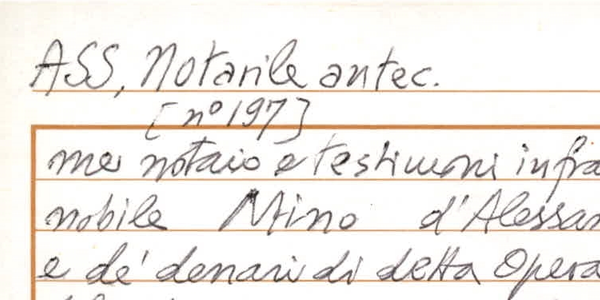 ASS, Notarile antec.
[nº 197]
me notaio e testimoni infra
nobile Mino d'Alessan
e de' denari di detta Opera